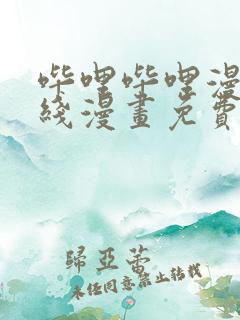 哔哩哔哩漫
线漫畫免費
歸亞蕾
未经同意禁止转载